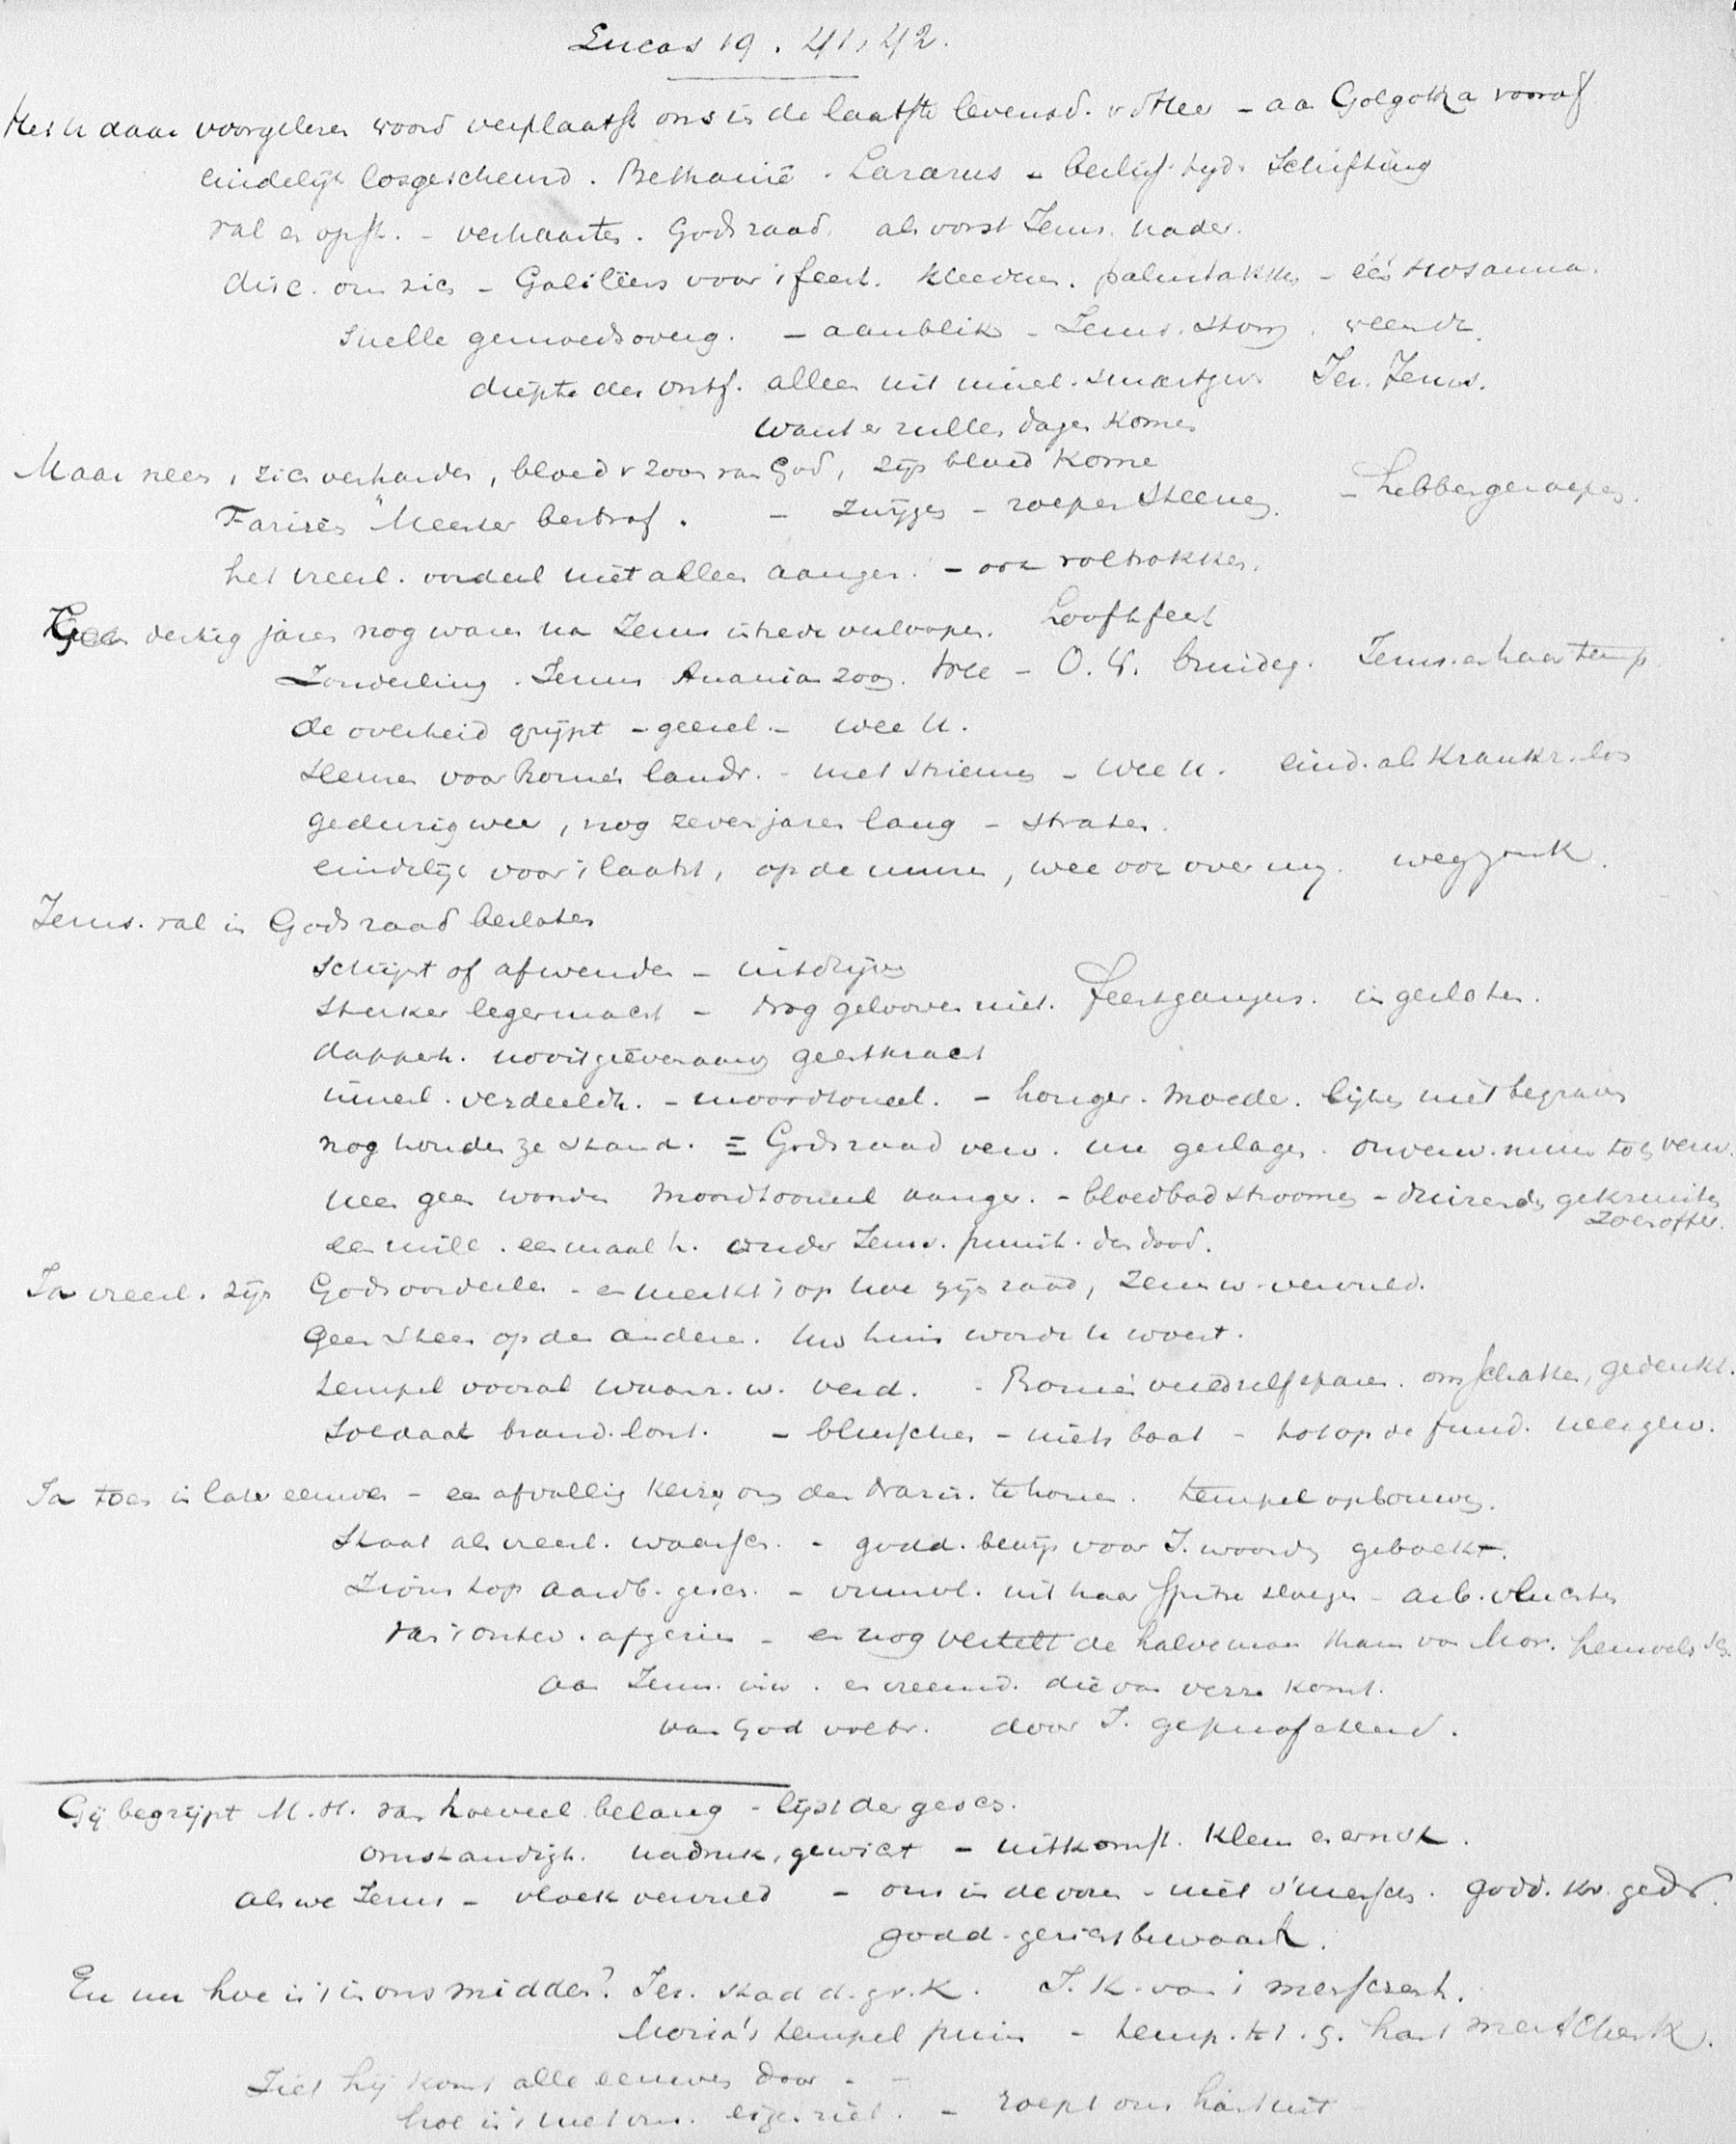 Lucas 19. 41, 42.
Het u daar voorgelezen woord verplaatst ons in de laatste levensd. v d Heer - aan Golgotha vooraf
eindelijk losgescheurd. Bethanië. Lazarus - beslis. tijd. Schifting
val en opst. - verhaasten. Gods raad. als vorst Jerus. nader.
disc. om zich - Galileërs voor 't feest. kleederen. palmtakken - één Hosanna.
Snelle gemoedsoverg. - aanblik - Jerus. stom. weende.
diepte der ontf. alleen uit
want er zullen dagen komen
Maar neen, zich verharden, bloed v zoon van God, zijn bloed kome
Farizeën "Meester bestraf. - zwijgen - roepen steenen. - hebben geroepen.
het vreesl. oordeel niet alleen aangez. - ook voltrokken.
Geen dertig jaren nog waren na Jezus intrede verloopen. Loofhfeest
Zonderling. Jezus Ananias zoon. wee - O. W. bruideg. Jerus. en haar temp
de overheid grijpt - geesel. - wee U.
sleuren voor Rome's landv. - met striemen - wee U. eind. als krankz. los
gedurig wee, nog zeven jaren lang - straten.
eindelijk voor 't laatst, op de muren, wee ook over mij. wegzonk.
Jerus. val in Gods raad besloten
schijnt of afwenden - uitdrijven
sterker legermacht - nog gelooven niet. feestgangers. ingesloten.
dapperh. nooit geëvenaard geestkracht
inwend. verdeeldh. - moordtooneel. - honger. moeder. lijken niet begraven
nog houden ze stand. = Gods raad verv. uur geslagen. onverw. muur
neen geen wonder moordtooneel aangez. - bloedbad stroomen - duizenden gekruisten
zoenoffer.
een mill. eenmaal h. onder Jerus. puinh. den dood.
Ja vreesl. zijn Gods oordeelen - en merkt 't op hoe zijn raad, Jezus w. vervuld.
Geen steen op den anderen. Uw huis worde U woest.
tempel vooral waarv. w. verd. - Rome's veldheer sparen. om schatten, gedenkt.
Soldaat brand. lont. - blusschen - niets baat - tot op de fund. neergew.
Ja toen in later eeuwen - een afvallig keizer om den Nazar. te honen. tempel opbouwen.
Staat als vreesl. waarsch. - godd. bewijs voor J. woorden geboekt.
Zions top aardb. gesch. - vuurvl. uit haar spitse slaagen - arb. vluchten
van 't ontw. afgezien - en nog vertelt de halve maan thans van Mor. heuvels
aan Jerus. inw. en vreemd. die van verre komt.
van God voltr. door J. geprofeteerd.
Gij begrijpt M. H. van hoeveel belang - lijst der gesch.
omstandigh. nadruk, gewicht - uitkomst. klem en ernst.
Als we Jerus - vloek vervuld - ons in de ooren - niet 's menschen. godd. kr. gedr.
godd. gerichtbewaarh.
En nu hoe is 't in ons midden? Jer. stad d. gr. K. J. K. van 't menschech.
Moria's tempel puin - temp. t. H. G. hart
Ziet hij komt alle eeuwen door - -
hoe is 't met ons. eigen ziel. - roept ons hart uit